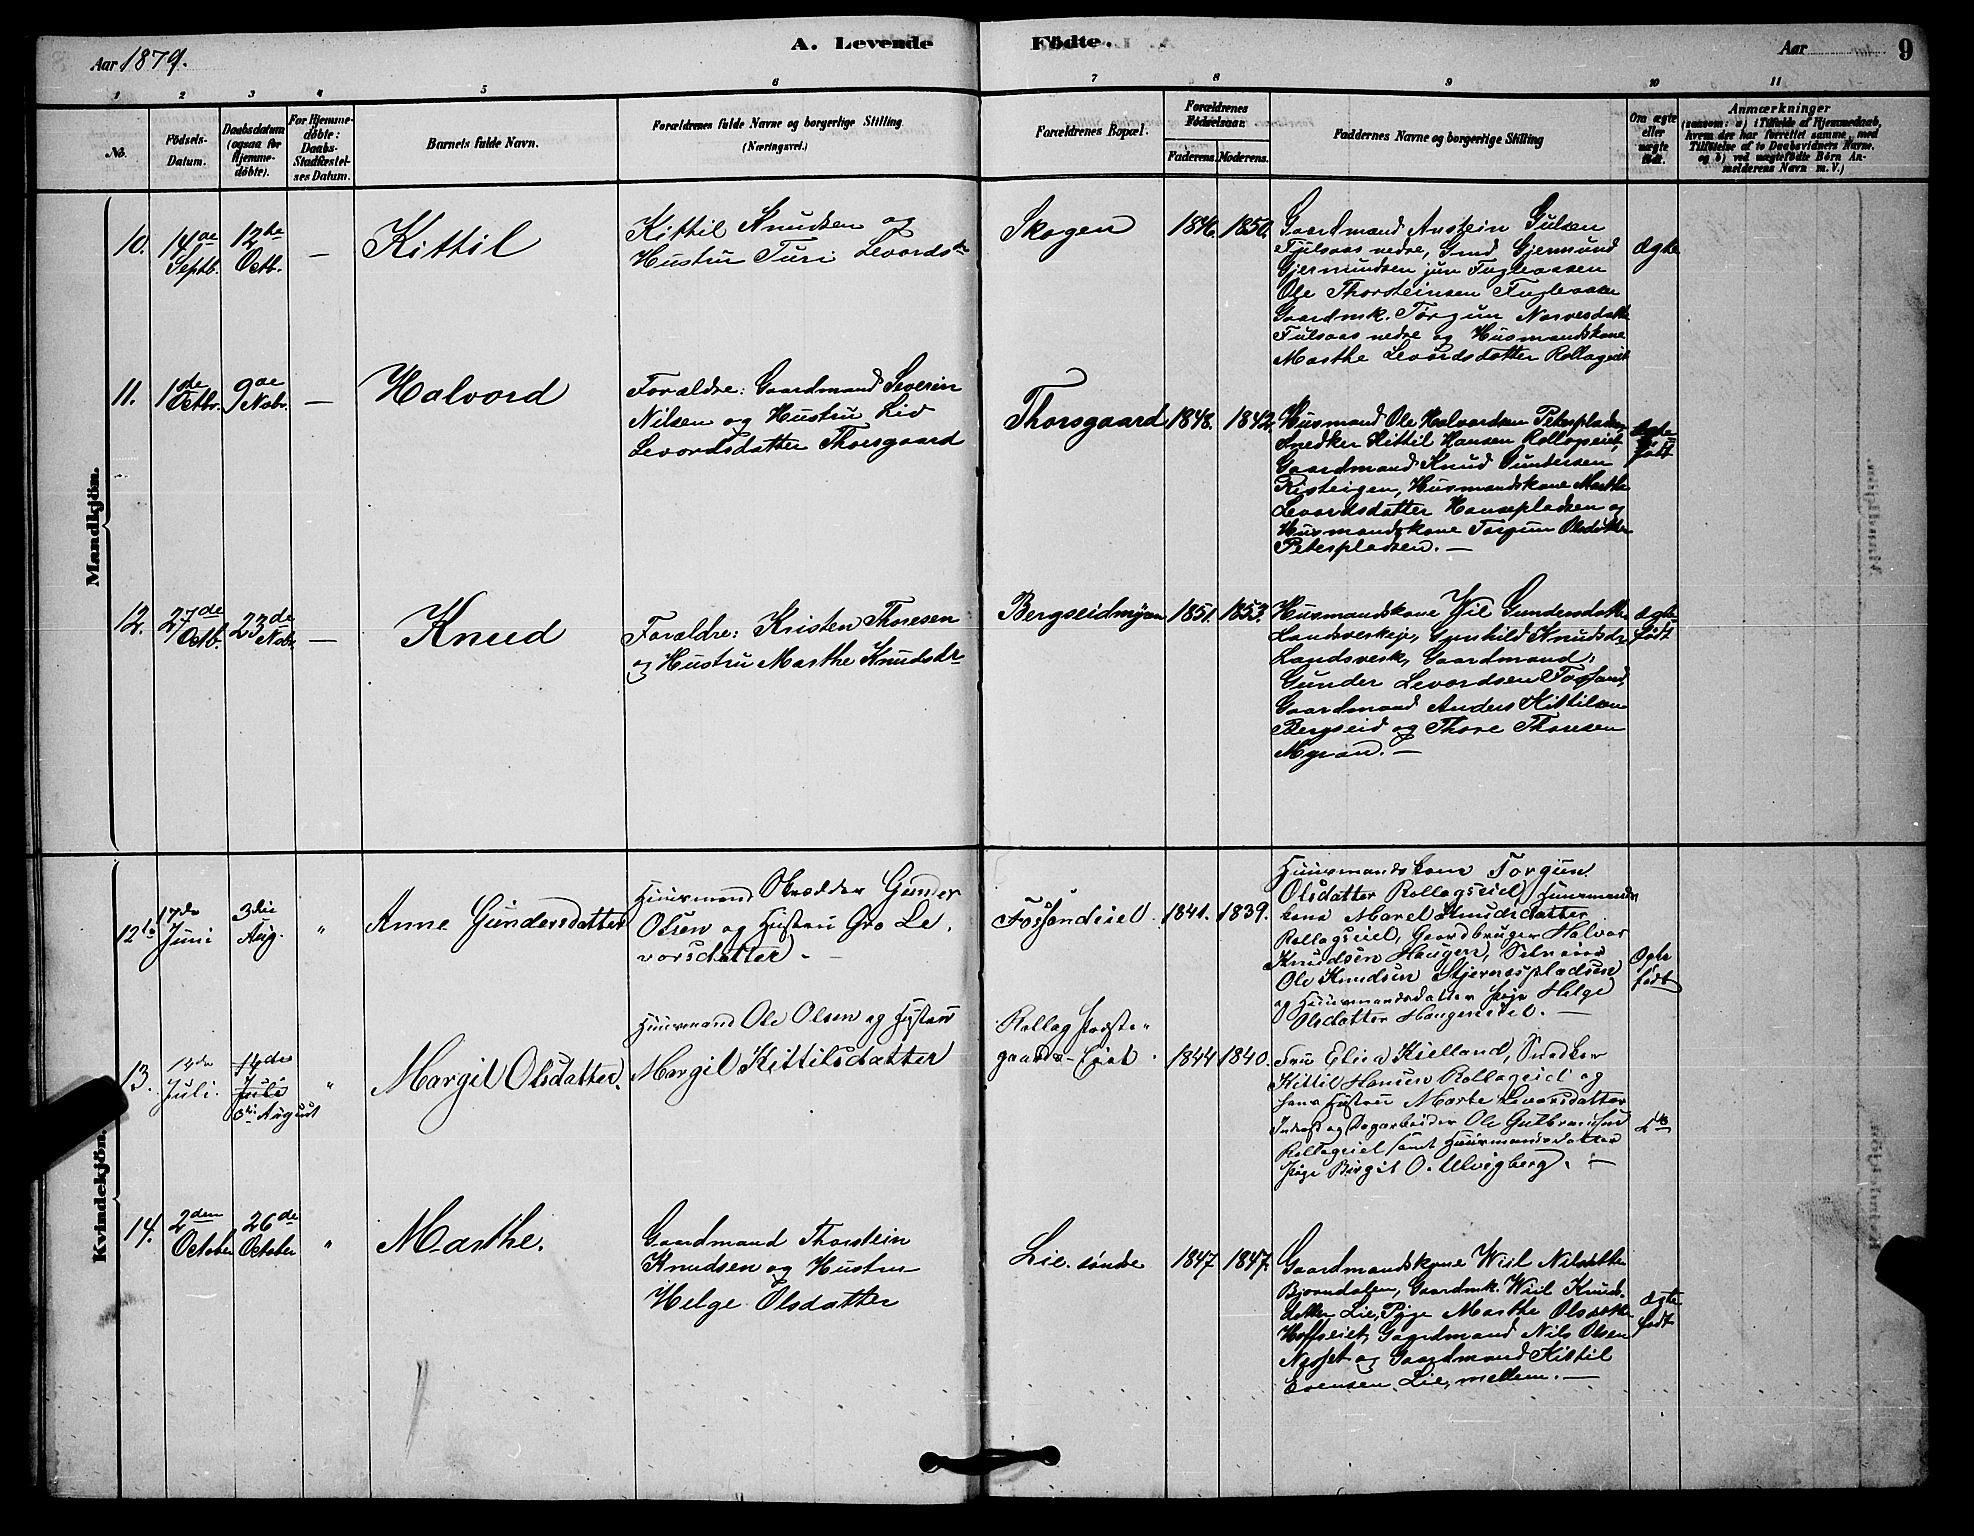 Aar 1879.
A. Levende Fødte.
Aar
9
1 2 3 4 5 6 7 8 9 10 11
No.
Födsels-Datum.
Daabsdatum (ogsaa for Hjemme-døbte).
For Hjemme-døbte: Daabs-Stadfæstel-ses Datum.
Barnets fulde Navn.
Forældrenes fulde Navne og borgerlige Stilling (Næringsvei.)
Forældrenes Bopæl.
Forældrenes Födselsaar.
Faderens. Moderens.
Faddernes Navne og borgerlige Stilling
Om ægte eller uægte født.
Anmærkninger
(saasom: a) i Tilfælde af Hjemmedaab,
hvem der har forrettet samme, med
Tilföielse af to Daabsvidners Navne.
og b) ved uægtefödte Börn An-
melderens Navn m. V.)
Mandkjön.
10. 14de Septb. 12te Octb. — Kittil
Kittil Knudsen og
Hustru Turi Levordsdtr
Skogen 1846. 1850.
Gaardmand Anstein Gulsen
Fulsaas nedre, Gmd Gjermund
Gjermundsen jun Fugleaasen
Ole Thorsteinsen Fugleaasen
Gaardmk. Torgun Narvesdatter
Fulsaas nedre og Husmandskone
Marthe Levordsdatter Rollageiet
ægte
11. 1ste Octbr. 9de Nobr. — Halvord
Forældre: Gaardmand Severin
Nilsen og Hustru Liv
Levordsdatter Thorsgaard
Thorsgaard 1848. 1842.
Husmand Ole Halvordsen Petersplads
Snedker Kittil Hansen Rollagseiet,
Gaardmand Knud Gundersen
Risteigen, Husmandskone Marthe
Levordsdatter Hansepladsen og
Husmandskone Torgun Olsdatter
Peterspladsen. —
ægte født
12. 27de Octb. 23de Nobr. — Knud
Forældre: Kristen Thoresen
og Hustru Marthe Knudsdtr
Bergseidmyran 1851. 1853.
Husmandskone Vil Gundersdatter
Landsverkeje, Gunhild Knudsdr
Landsverk, Gaardmand
Gunder Levordsen Fossand,
Gaardmand Anders Kittilsen
Bergseid og Thore Thoresen
Myran. —
ægte født
Kvindekjön.
12b 17de Juni 3die Aug. " Anne Gundersdatter
Huusmand Gunder
Olsen og Hustru Gro Le-
vorsdatter. —
Fossandeiet. 1841. 1839.
Huusmandskone Torgun
Olsdatter Rollagseiet, Huusmands
kone Marel Knudsdatter
Rollagseiet, Gaardbruger Halvor
Knudsen Haugen,
Ole Knudsen Stjernespladsen
og Huusmandsdatter pige Helge
Olsdatter Haugeneiet. —
Ægte født
13. Juli. Juli 3die August " Margit Olsdatter.
Huusmand Ole Olsen og Hustru
Margit Kittilsdatter
Rollag Præste-
gaards-Eiet. 1844 1840.
Fru Elisa Kielland, Snedker
Kittil Hansen Rollageiet og
hans Hustru Marte Levorsdatter
Inderst og Dagarbeider Ole Gulbrandsen
Rollageiet samt Huusmandsdatter
Pige Birgit O. Ulvigberg. —
dto
14. 2den October 26de October " Marthe.
Gaardmand Thorstein
Knudsen og Hustru
Helge Olsdatter
Lie søndre 1847 1847.
Gaardmandskone Wiel Nilsdatter
Bjørndalen, Gaardmk. Wiel Knuds-
datter Lie, Pige Marthe Olsdatter
Hoffseiet, Gaardmand Nils Olsen
Næsset og Gaardmand Kittil
Evensen Lie, mellem. —
ægte født